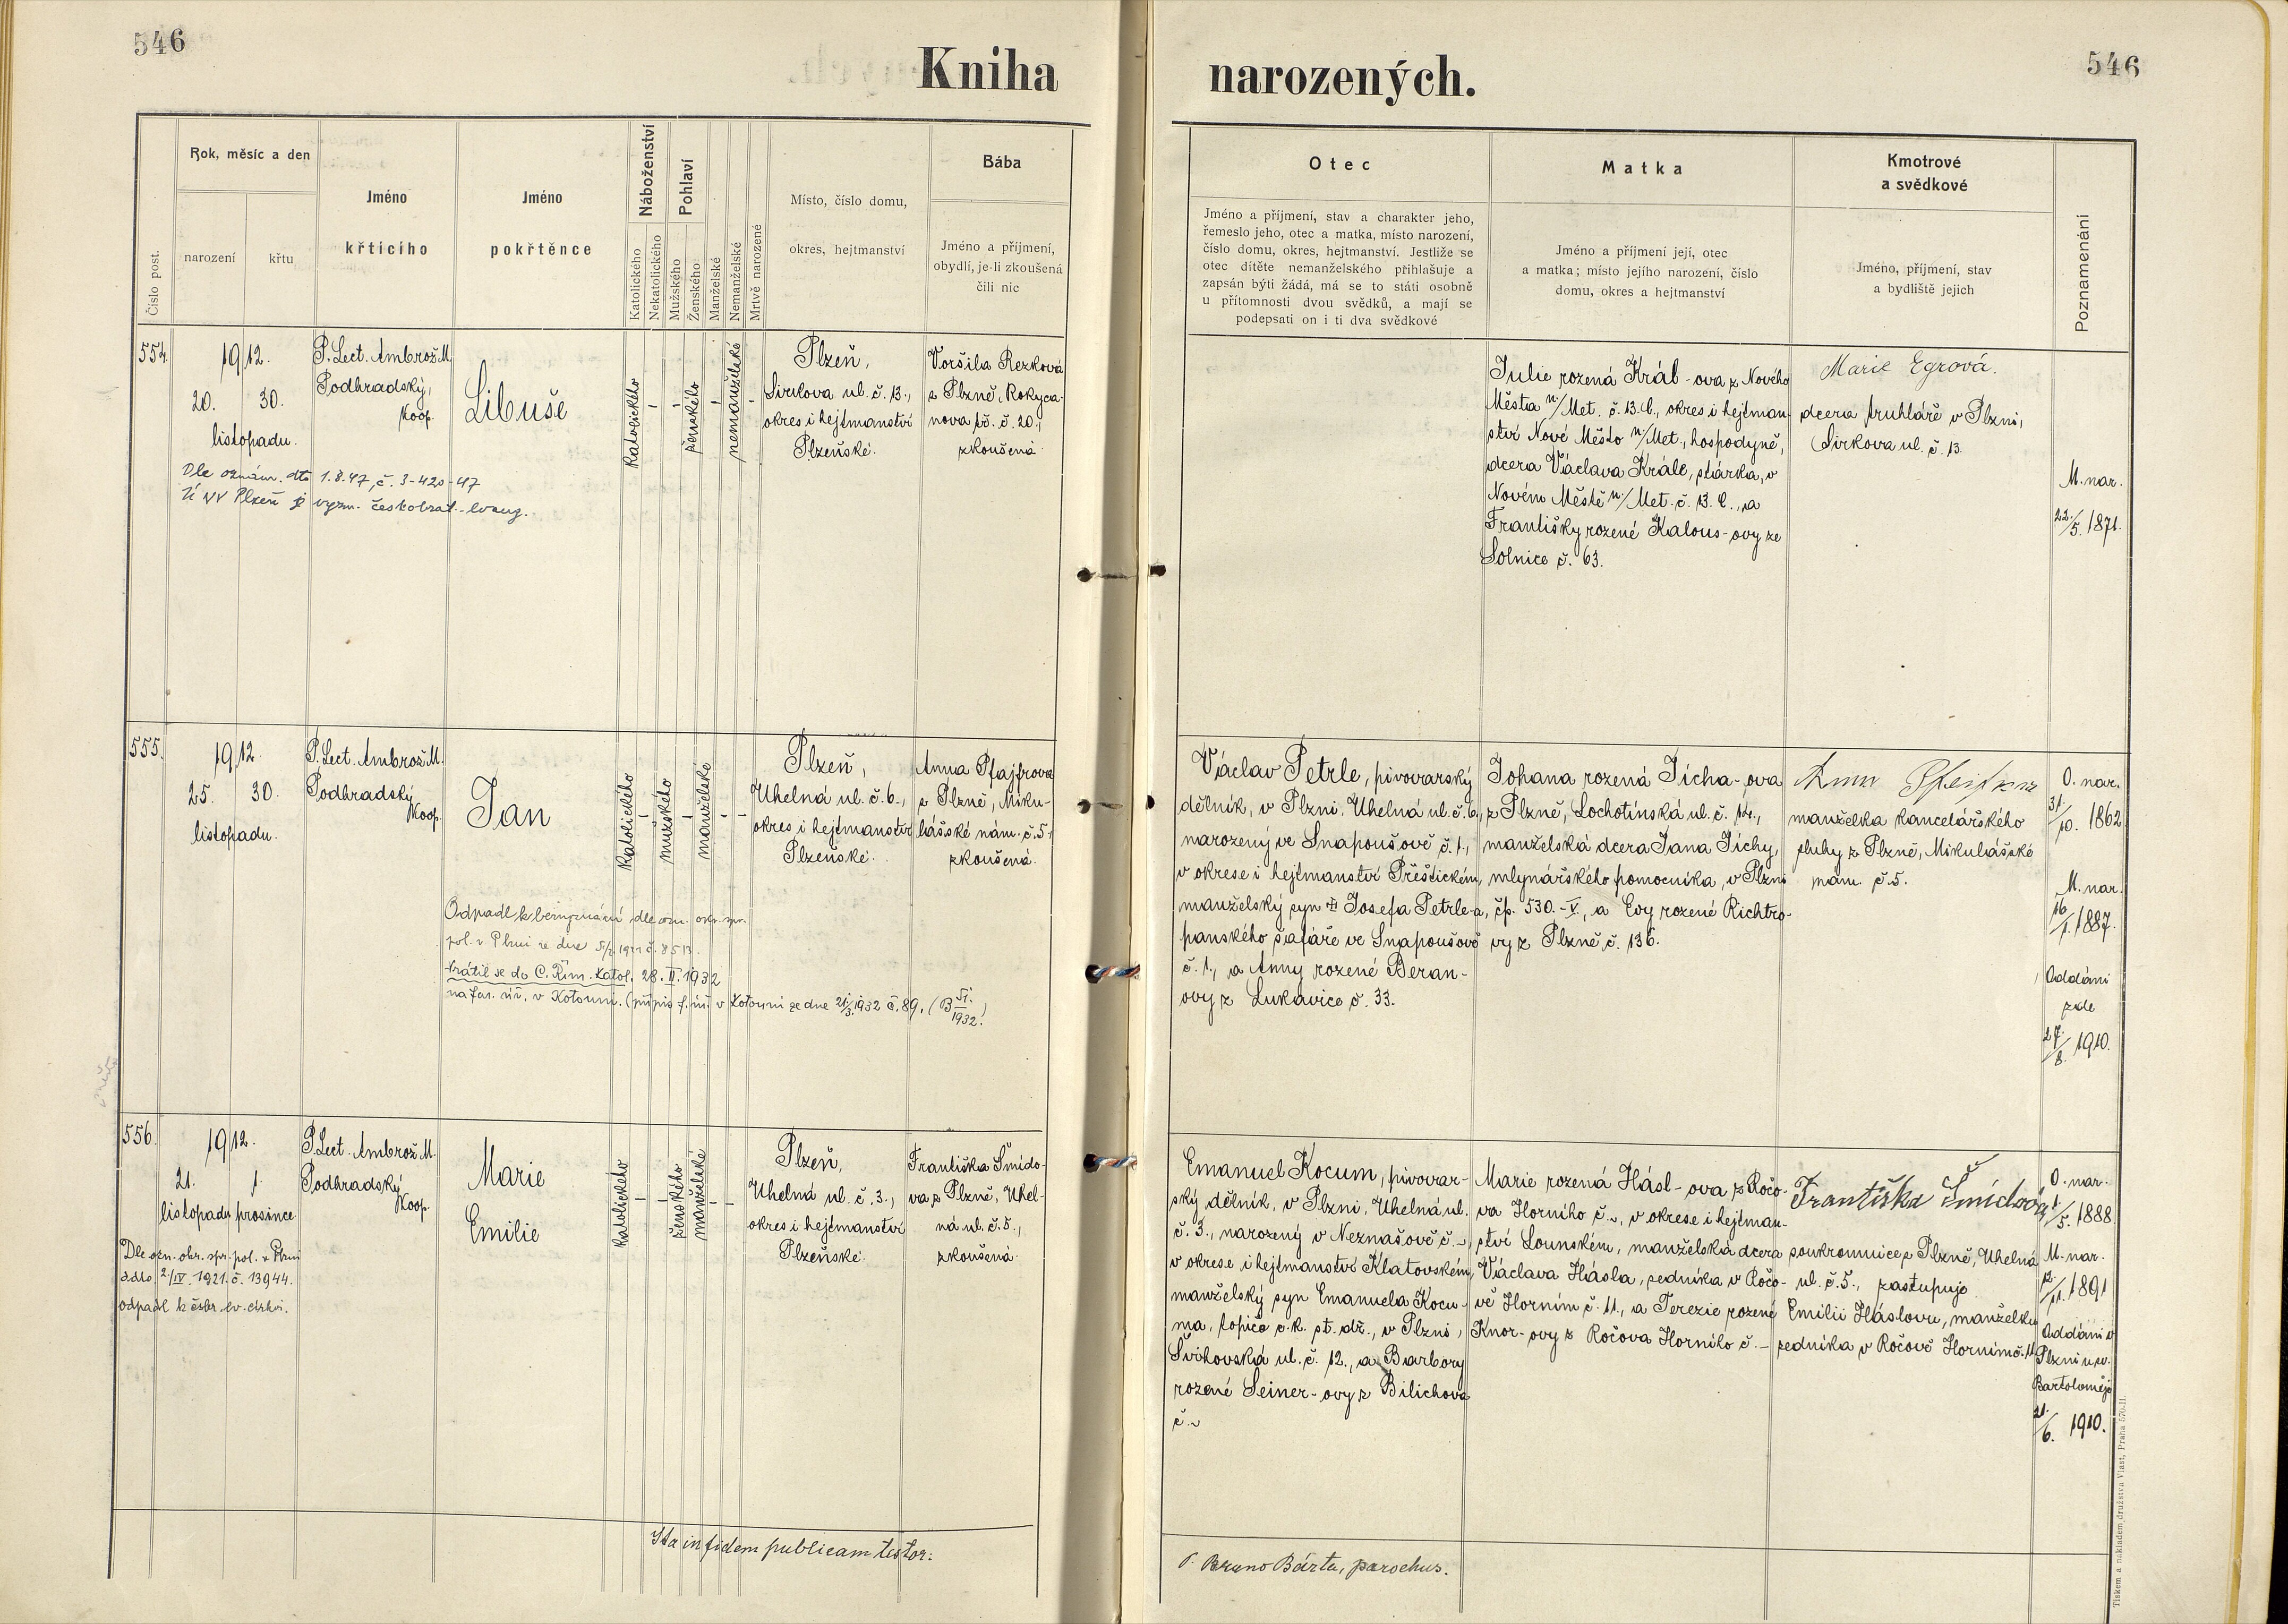 546
546
Kniha narozených.
Číslo post.
Rok, měsíc a den
narození
křtu
Jméno
křtícího
Jméno
pokřtěnce
Náboženství
Katolického
Nekatolického
Pohlaví
Mužského
Ženského
Manželské
Nemanželské
Mrtvě narozené
Místo, číslo domu,
okres, hejtmanství
Bába
Jméno a příjmení,
obydlí, je-li zkoušená
čili nic
Otec
Jméno a příjmení, stav a charakter jeho,
řemeslo jeho, otec a matka, místo narození,
číslo domu, okres, hejtmanství. Jestliže se
otec dítěte nemanželského přihlašuje a
zapsán býti žádá, má se to státi osobně
u přítomnosti dvou svědků, a mají se
podepsati on i ti dva svědkové
Matka
Jméno a příjmení její, otec
a matka; místo jejího narození, číslo
domu, okres a hejtmanství
Kmotrové
a svědkové
Jméno, příjmení, stav
a bydliště jejich
Poznamenání
554.
1912.
20. 30.
listopadu.
P. Lect. Ambrož M.
Podhradský,
Koop.
Libuše
Katolického
ženského
nemanželské
Plzeň,
Sirkova ul. č. 13.,
okres i hejtmanství
Plzeňské.
Voršila Rezková
z Plzně, Rokyca-
nova tř. č. 20.,
zkoušená.
Dle oznám. dto 1.8.47, č. 3-420-47
Ú NV Plzeň je vyzn. českobrat. evang.
Julie rozená Král-ova z Nového
Města n/Met. č. 13. C., okres i hejtman-
ství Nové Město n/Met., hospodyně,
dcera Václava Krále, stárka, v
Novém Městě n/Met. č. 13. C., a
Františky rozené Kalous-ovy ze
Solnice č. 63.
Marie Egrová.
dcera truhláře v Plzni,
Sirkova ul. č. 13.
M. nar.
22./5. 1871.
555.
1912.
25. 30.
listopadu.
P. Lect. Ambrož M.
Podhradský
Koop.
Jan
Katolického
mužského
manželské
Plzeň,
Uhelná ul. č. 6.,
okres i hejtmanství
Plzeňské.
Anna Pfajfrova
z Plzně, Miku-
lášské nám. č. 5.,
zkoušená.
Odpadl k bezvyznání dle ozn. okr. spr.
pol. v Plzni ze dne
vrátil se do C. Řím. Katol. 28. II. 1932
na far. úř. v Kotouni. (přípis f. úř. v Kotouni ze dne 21/3. 1932 č. 89.
Václav Petrle, pivovarský
dělník, v Plzni, Uhelná ul. č. 6.,
narozený ve Snapoušově č. 1.,
v okrese i hejtmanství Přeštickém,
manželský syn † Josefa Petrle-a,
panského šafáře ve Snapoušově
č. 1., a Anny rozené Beran-
ovy z Lukavice č. 33.
Johana rozená Tícha-ova
z Plzně, Lochotínská ul. č. 14.,
manželská dcera Jana Tíchy,
mlynářského pomocníka, v Plzni
čp. 530.-V., a Evy rozené Richtro-
vy z Plzně č. 136.
Anna
manželka kancelářského
sluhy z Plzně, Mikulášské
nám. č. 5.
O. nar.
31/10. 1862
M. nar.
16/1. 1887.
Oddáni
zde
27./8. 1910.
556.
1912.
21. 1.
listopadu prosince
P. Lect. Ambrož M.
Podhradský
Koop.
Marie
Emilie
Katolického
ženského
manželské
Plzeň,
Uhelná ul. č. 3.,
okres i hejtmanství
Plzeňské.
Františka Šmído-
va z Plzně, Uhel-
ná ul. č. 5.,
zkoušená.
Dle ozn. okr. spr. pol. v Plzni
ddto 2/IV. 1921. č. 13944.
odpadl k čsbr. ev. církvi.
Emanuel Kocum, pivovar-
ský dělník, v Plzni, Uhelná ul.
č. 3., narozený v Neznašově č. -
v okrese i hejtmanství Klatovském,
manželský syn Emanuela Kocu-
ma, topiče c. k. st. dr., v Plzni,
Švihovská ul. č. 12., a Barbory
rozené Seiner-ovy z Bilichova
č. -
Marie rozená Hásl-ova z Ročo-
va Horního č. -, v okrese i hejtman-
ství Lounském, manželská dcera
Václava Hásla, zedníka v Ročo-
vě Horním č. 11., a Terezie rozené
Knor-ovy z Ročova Horního č. -
Františka Šmídová
soukromnice z Plzně, Uhelná
ul. č. 5., zastupuje
Emilii Háslovu, manželku
zedníka v Ročově Horním č. 11
O. nar.
1/5. 1888.
M. nar.
12./11. 1891
Oddáni v
Plzni u sv.
Bartoloměje
21./6. 1910.
Ita in fidem publicam testor:
P. Bruno Bárta, parochus.
Tiskem a nakladem družstva Vlast, Praha 570-II.